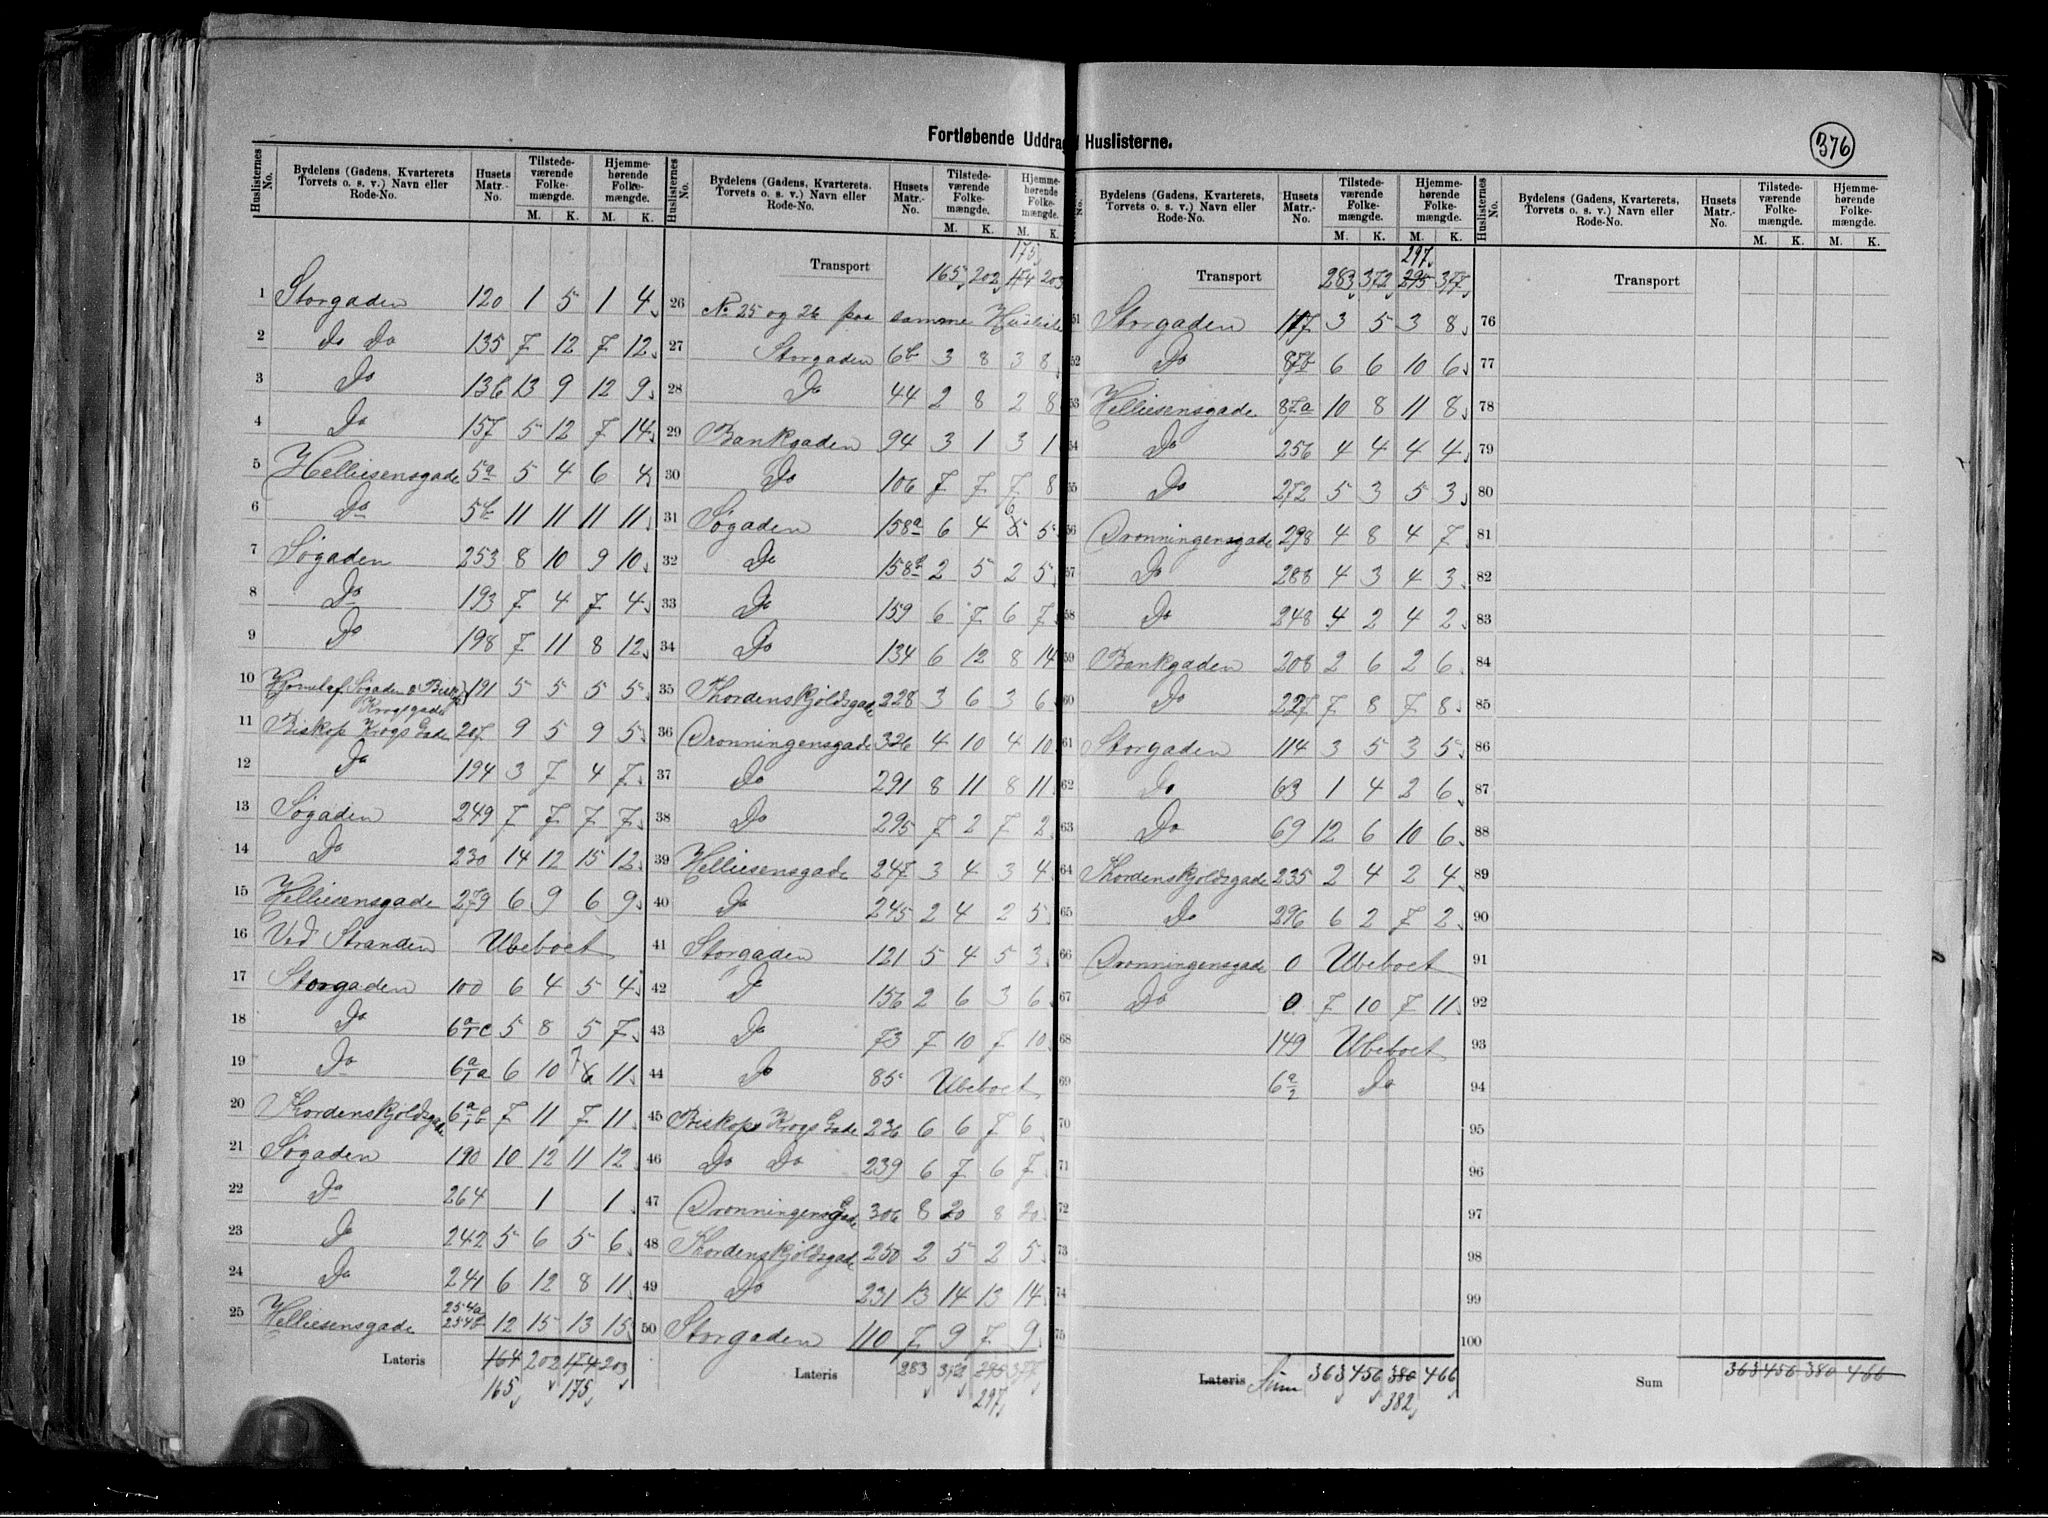 Fortløbende Uddrag Huslisterne.
376
Huslisternes No. | Bydelens (Gadens, Kvarterets, Torvets o. s. v.) Navn eller Rode-No. | Husets Matr.-No. | Tilstedeværende Folkemængde. M. K. | Hjemmehørende Folkemængde. M. K.
1 Storgaden 120 1 5 1 4
2 Do Do 135 7 12 7 12
3 Do 136 13 9 12 9
4 Do 157 5 12 7 14
5 Helliesensgade 5a 5 4 6 4
6 Do 5b 11 11 11 11
7 Søgaden 253 8 10 9 10
8 Do 193 7 4 7 4
9 Do 198 7 11 8 12
10 Hjørnet af Søgaden o Bisk Krogsgade 191 5 5 5 5
11 Biskop Krogs Gade 207 9 5 9 5
12 Do 194 3 7 4 7
13 Søgaden 249 7 7 7 7
14 Do 230 14 12 15 12
15 Helliesensgade 279 6 9 6 9
16 Ved Stranden Ubeboet
17 Storgaden 100 6 4 5 4
18 Do 6a/1c 5 8 5 7
19 Do 6a/1a 6 10 7 6 11
20 Thordenskjoldsgade 6a/1b 7 11 7 11
21 Søgaden 190 10 12 11 12
22 Do 264 1 1
23 Do 242 5 6 5 6
24 Do 241 6 12 8 11
25 Helliesensgade 254a 254b 12 15 13 15
Lateris 164 202 174 203
165 175
Huslisternes No. | Bydelens (Gadens, Kvarterets, Torvets o. s. v.) Navn eller Rode-No. | Husets Matr.-No. | Tilstedeværende Folkemængde. M. K. | Hjemmehørende Folkemængde. M. K.
175
Transport 165 202 174 203
26 No 25 og 26 paa samme Husliste
27 Storgaden 6b 3 8 3 8
28 Do 44 2 8 2 8
29 Bankgaden 94 3 1 3 1
30 Do 106 7 7 7 8
31 Søgaden 158a 6 4 6 5 5
32 Do 158b 2 5 2 5
33 Do 159 6 7 6 7
34 Do 134 6 12 8 14
35 Thordenskjoldsgade 228 3 6 3 6
36 Dronningensgade 326 4 10 4 10
37 Do 291 8 11 8 11
38 Do 295 7 2 7 2
39 Helliesensgade 247 3 4 3 4
40 Do 245 2 4 2 5
41 Storgaden 121 5 4 5 3
42 Do 156 2 6 3 6
43 Do 73 7 10 7 10
44 Do 85 Ubeboet
45 Biskop Krogs Gade 236 6 6 7 6
46 Do Do 239 6 7 6 7
47 Dronningensgade 306 8 20 8 20
48 Thordenskjoldsgade 250 2 5 2 5
49 Do 231 13 14 13 14
50 Storgaden 110 7 9 7 9
Lateris 283 372 295 377
297
Bydelens (Gadens, Kvarterets, Torvets o. s. v.) Navn eller Rode-No. | Husets Matr.-No. | Tilstedeværende Folkemængde. M. K. | Hjemmehørende Folkemængde. M. K.
297
Transport 283 372 295 377
51 Storgaden 117 3 5 3 8
52 Do 87b 6 6 10 6
53 Helliesensgade 87a 10 8 11 8
54 Do 256 4 4 4 4
55 Do 272 5 3 5 3
56 Dronningensgade 298 4 8 4 7
57 Do 288 4 3 4 3
58 Do 248 4 2 4 2
59 Bankgaden 208 2 6 2 6
60 Do 227 7 8 7 8
61 Storgaden 114 3 5 3 5
62 Do 63 1 4 2 6
63 Do 69 12 6 10 6
64 Thordenskjoldsgade 235 2 4 2 4
65 Do 296 6 2 7 2
66 Dronningensgade 0 Ubeboet
67 Do 0 7 10 7 11
68 149 Ubeboet
69 6a/2 Do
70
71
72
73
74
75
Lateris Sum 363 456 380 466
382
Huslisternes No. | Bydelens (Gadens, Kvarterets, Torvets o. s. v.) Navn eller Rode-No. | Husets Matr.-No. | Tilstedeværende Folkemængde. M. K. | Hjemmehørende Folkemængde. M. K.
Transport
76
77
78
79
80
81
82
83
84
85
86
87
88
89
90
91
92
93
94
95
96
97
98
99
100
Sum 363 456 380 466